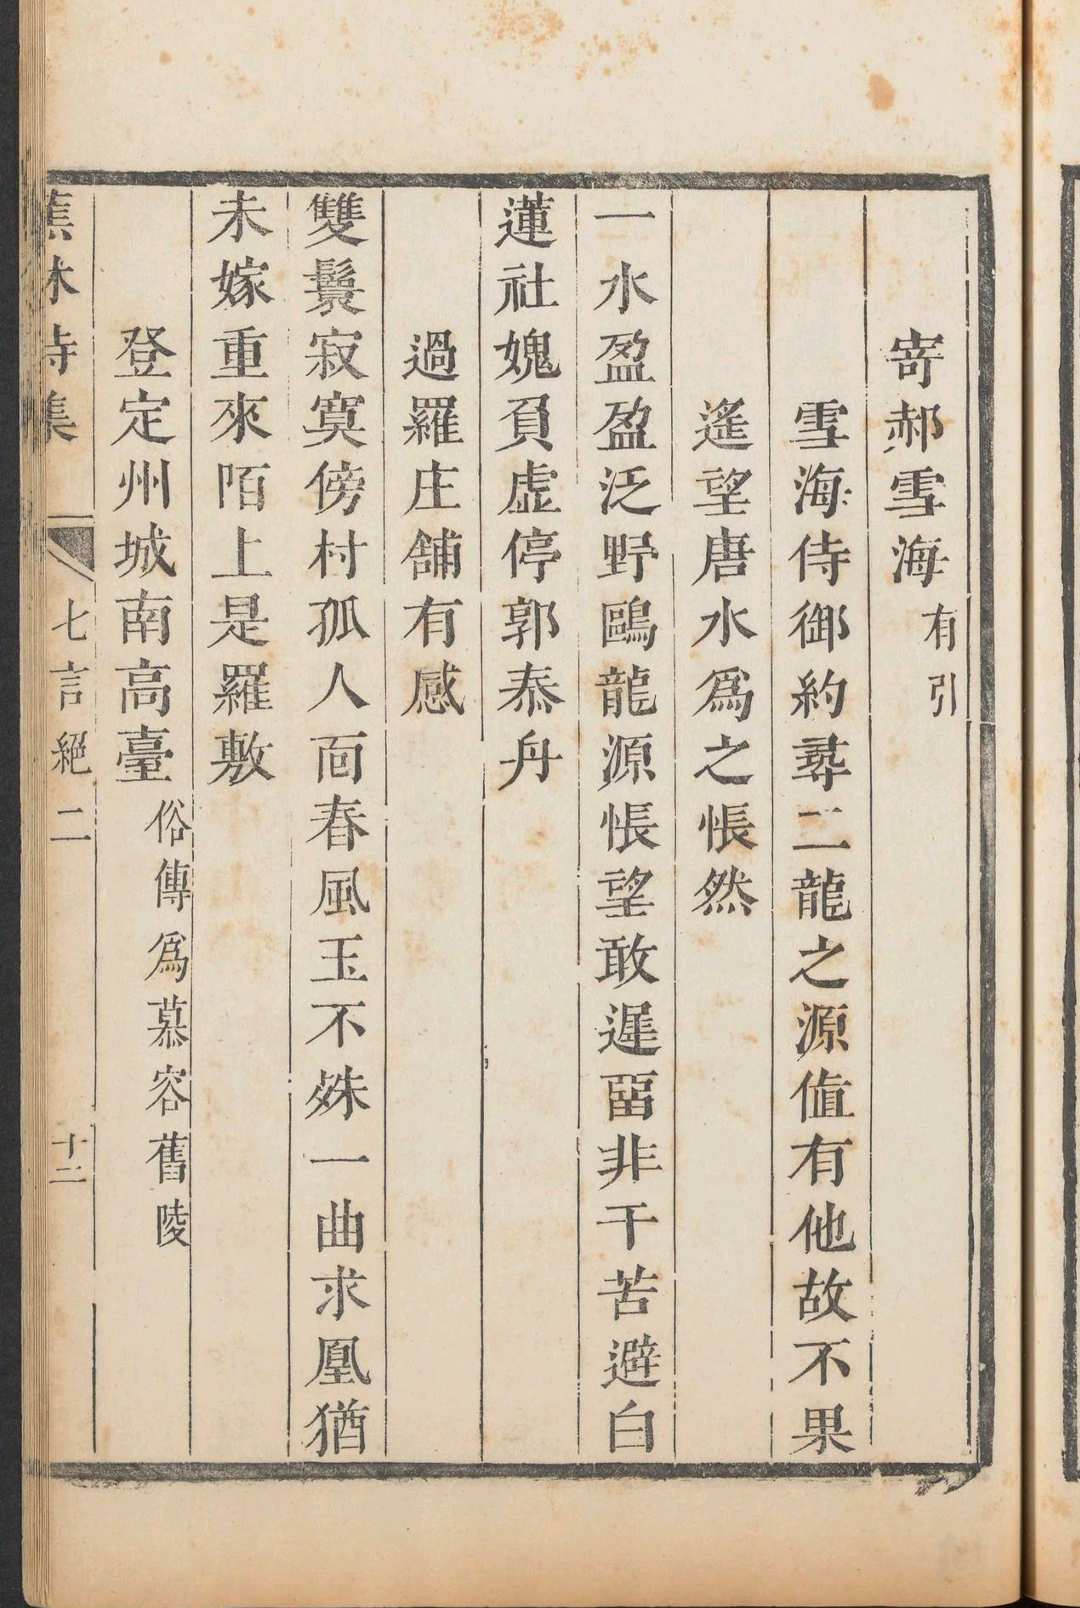 寄郝雪海有引
雪海侍御約尋二龍之源值有他故不果
遙望唐水爲之悵然
一水盈盈泛野鷗龍源悵望敢遲畱非干苦避白
蓮社媿負虛停郭泰舟
過羅庄舖有感
雙鬟寂寞傍村孤人面春風玉不姝一曲求凰猶
未嫁重來陌上是羅敷
登定州城南高臺俗傳爲慕容舊陵
蕉林詩集
七言絕二
十二